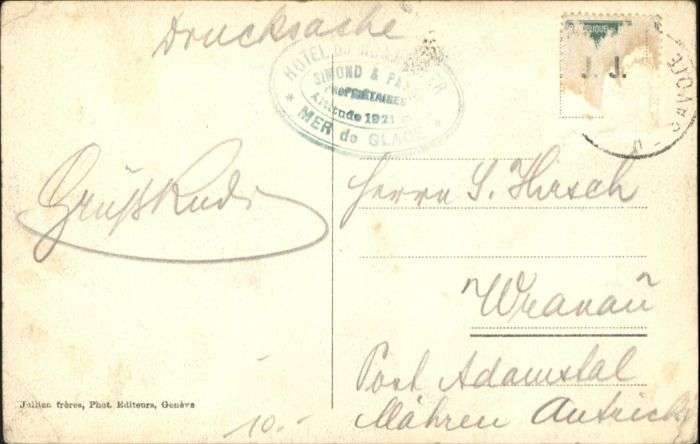 Drucksache
HOTEL DU
SIMOND &
PROPRIÉTAIRES
Altitude 1921
* MER de GLACE *
J. J.
Gruß Rudi
Herrn S. Hirsch
Wranau
Post Adamstal
Mähren Austrich
Jullien frères, Phot. Editeurs, Genève
10.-